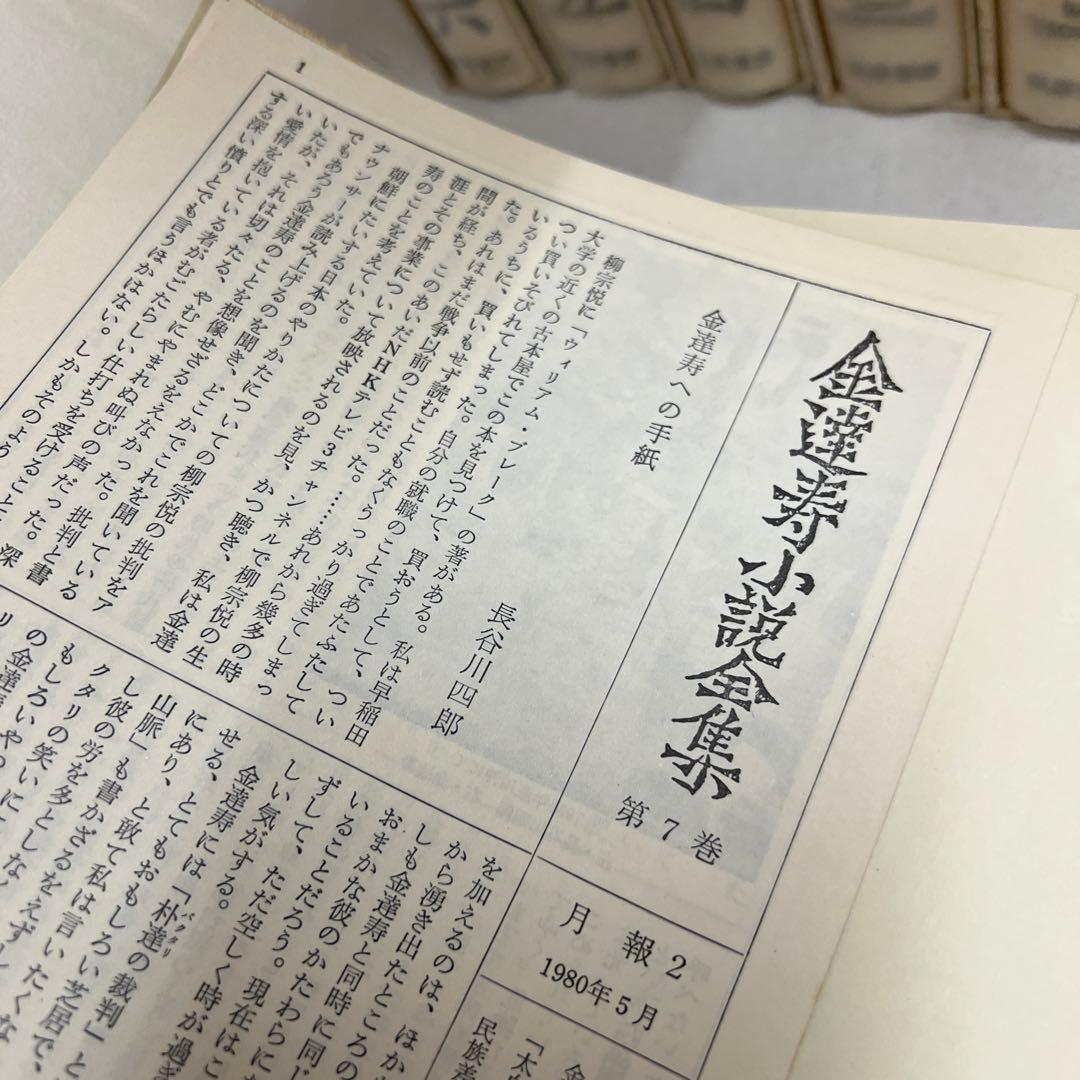 金達寿小説全集
第7巻
月報2
1980年5月
金達寿への手紙
長谷川四郎
柳宗悦に「ウィリアム・ブレーク」の著がある。私は早稲田
大学の近くの古本屋でこの本を見つけて、買おうとして、つい
つい買いそびれてしまった。自分の就職のことであたふたして
いるうちに、買いもせず読むこともなくうっかり過ぎてしまっ
た。あれはまだ戦争以前のことだった。……あれから幾多の時
間が経ち、このあいだNHKテレビ3チャンネルで柳宗悦の生
涯とその事業について放映されるのを見、かつ聴き、私は金達
寿のことを考えていた。
朝鮮にたいする日本のやりかたについての柳宗悦の批判をア
ナウンサーが読み上げるのを聞き、どこかでこれを聞いている
でもあろう金達寿のことを想像せざるをえなかった。批判と書
いたが、それは切々たる、やむにやまれぬ叫びの声だった。深
い愛情を抱いている者がむごたらしい仕打ちを受けること
する深い憤りとでも言うほかはない。しかもそのよう
を加えるのは、ほか
から湧き出たところの
しも金達寿と同時に同じ
おまかな彼のかたわらに
いることだろう。現在はこ
ずして、ただ空しく時が過ぎ
しい気がする。
金達寿には「朴達の裁判」と
せる、とてもおもしろい芝居で、
にあり、と敢て私は言いたくな
山脈」も書かざるをえず
し彼の労を多としなく
1